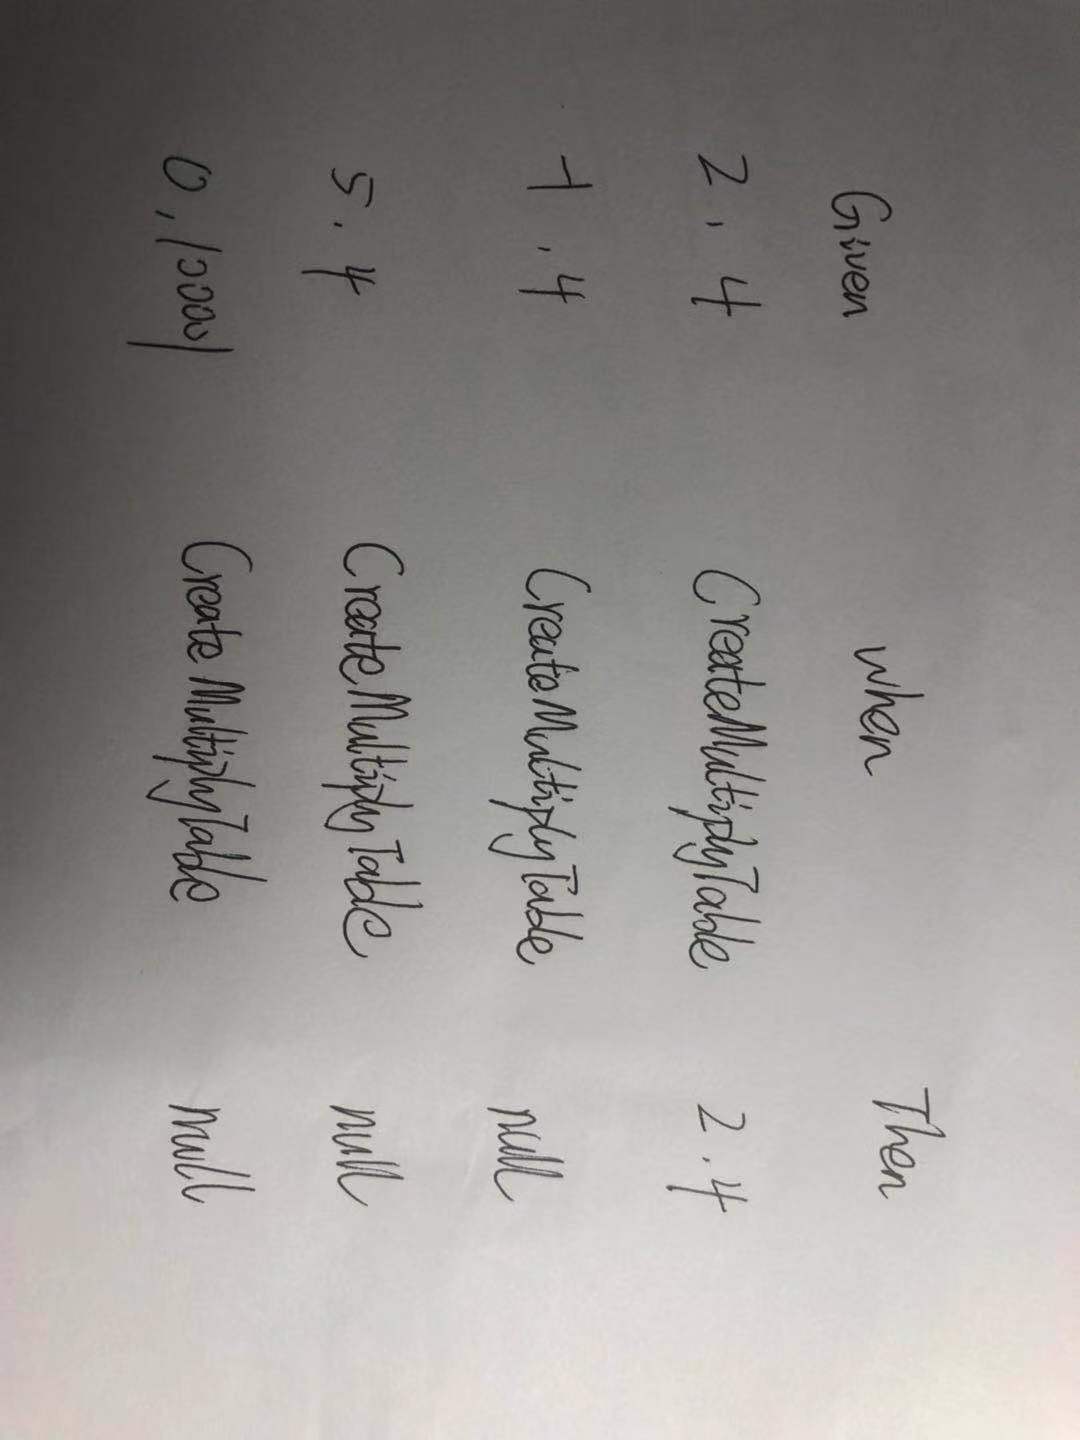 Given when Then
2, 4 CreateMultiplyTable 2.4
-1, 4 CreateMultiplyTable null
5. 4 CreateMultiplyTable null
0, 100001 Create MultiplyTable null